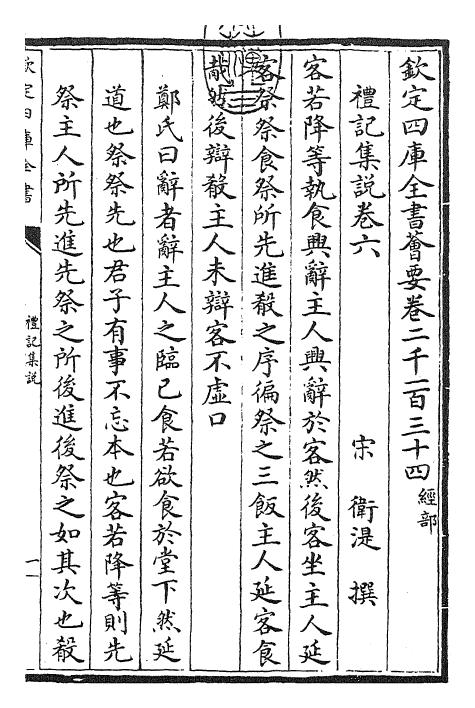 欽定四庫全書薈要卷二千一百三十四 經部
禮記集說卷六 宋 衛湜 撰
客若降等執食興辭主人興辭於客然後客坐主人延
客祭祭食祭所先進殽之序徧祭之三飯主人延客食
胾然後辯殽主人未辯客不虛口
鄭氏曰辭者辭主人之臨己食若欲食於堂下然延
道也祭祭先也君子有事不忘本也客若降等則先
祭主人所先進先祭之所後進後祭之如其次也殽
欽定四庫全書
禮記集說
一